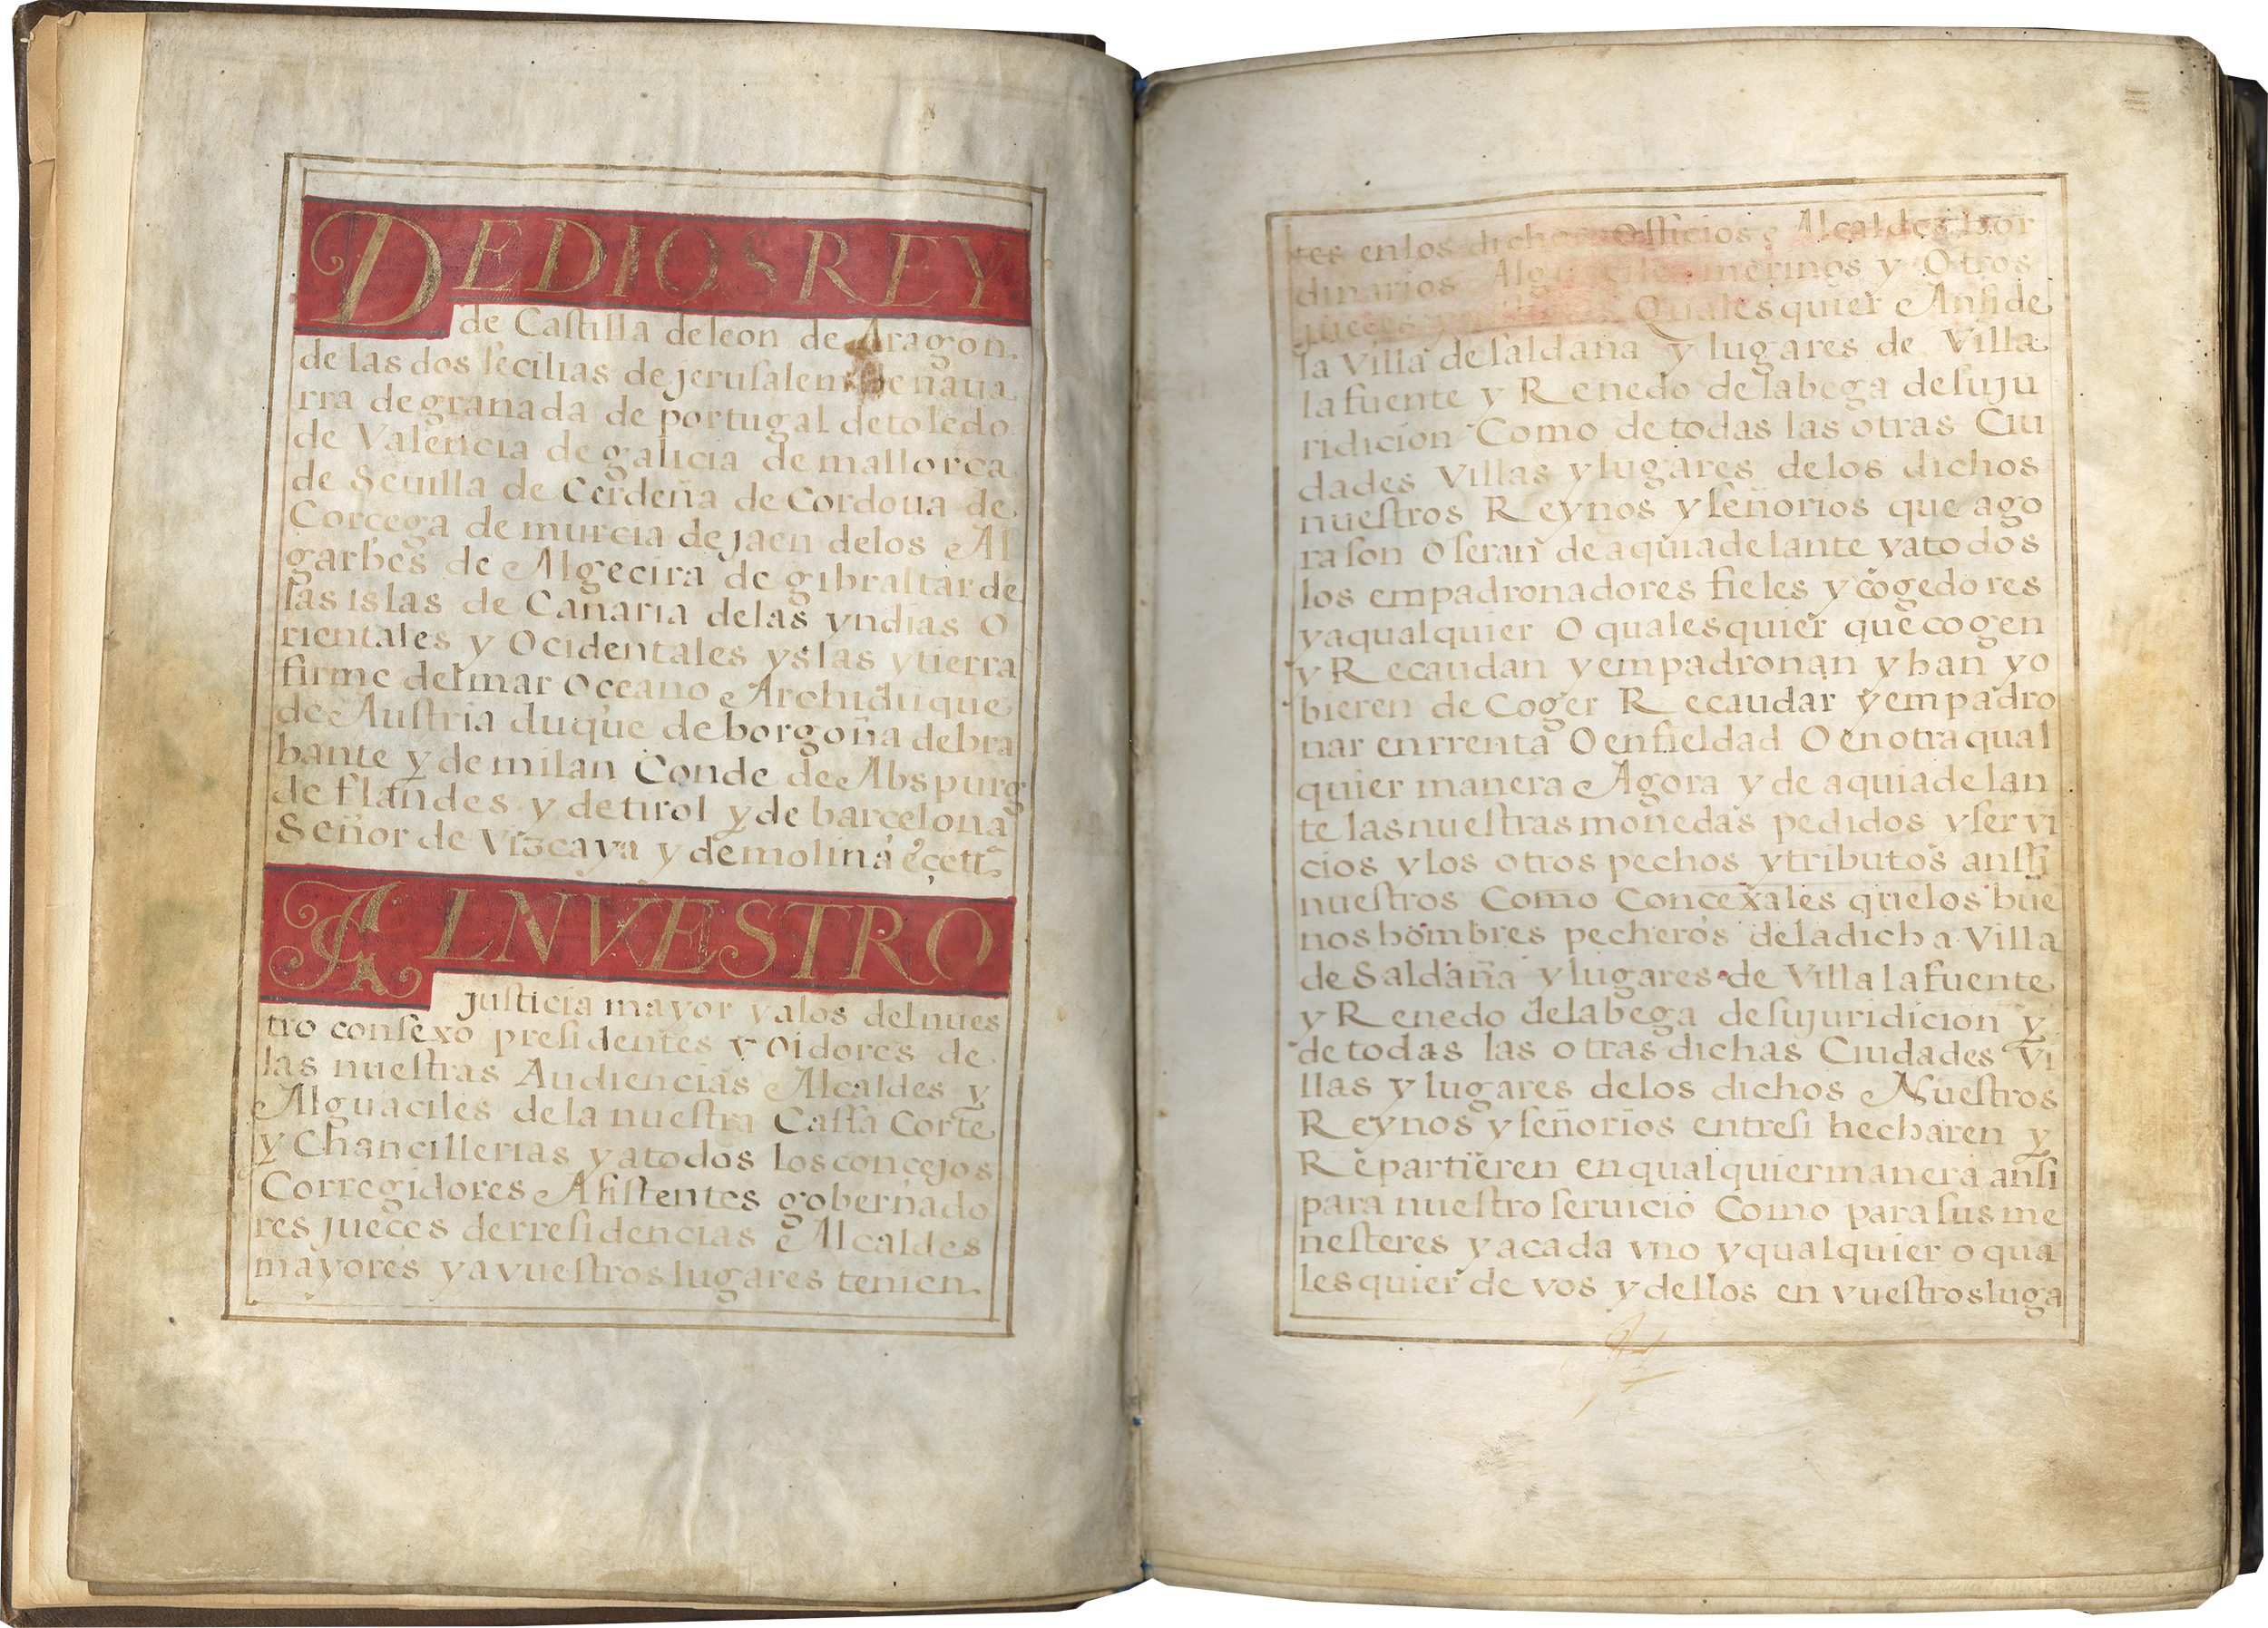 DE DIOS REY
de Caſtilla de leon de Aragon.
de las dos ſecilias de jeruſalem de naua
rra de granada de portugal de toledo
de Valencia de galicia de mallorca
de Seuilla de Cerdeña de Cordoua de
Corçega de murcia de jaen de los Al
garbes de Algecira de gibraltar de
las islas de Canaria de las yndias O
rientales y Ocidentales yslas y tierra
firme del mar oçeano Archiduque
de Auſtria duque de borgoña de bra
bante y de milan Conde de Abspurg
de flandes y de tirol y de barçelona
Señor de Vizcaya y de molina eçettª
AL NVESTRO
juſticia mayor y a los del nues
tro conſexo preſidentes y oidores de
las nueſtras Audiencias Alcaldes y
Alguaciles de la nueſtra Caſſa Corte
y Chancillerias y a todos los concejos
Corregidores Aſiſtentes gobernado
res jueces de rreſidencias Alcaldes
mayores y a vueſtros lugares tenien
tes en los dichos Officios e Alcaldes hor
dinarios Alguaciles merinos y Otros
jueces Quales quier Anſi de
la Villa de ſaldaña y lugares de Villa
la fuente y Renedo de la bega de ſu ju
ridicion Como de todas las otras Ciu
dades Villas y lugares de los dichos
nueſtros Reynos y ſeñorios que ago
ra ſon O ſeran de aqui adelante y a todos
los empadronadores fieles y cogedores
y a qual quier O quales quier que cogen
y Recaudan y empadronan y han y o
bieren de Coger Recaudar y empadro
nar en rrenta O en fieldad O en otra qual
quier manera Agora y de aqui adelan
te las nueſtras monedas pedidos y ſer vi
cios y los otros pechos y tributos anſſi
nueſtros Como Concexales que los bue
nos hombres pecheros de la dicha Villa
de Saldaña y lugares de Villa la fuente
y Renedo de la bega de ſu juridicion y
de todas las otras dichas Ciudades Vi
llas y lugares de los dichos Nueſtros
Reynos y ſeñorios entre ſi hecharen y
Repartieren en qual quier manera anſi
para nueſtro ſeruicio Como para ſus me
neſteres y a cada vno y qual quier o qua
les quier de vos y dellos en vueſtros luga